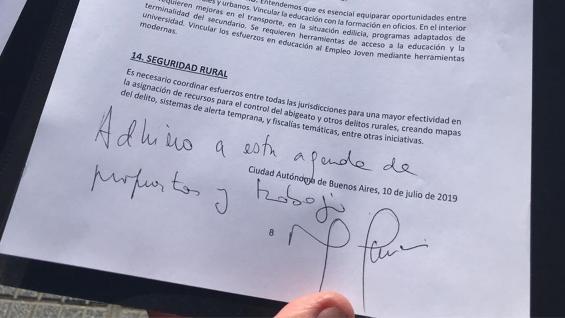 Entendemos que es esencial equiparar oportunidades entre
es y urbanos. Vincular la educación con la formación en oficios. En el interior
requieren mejoras en el transporte, en la situación edilicia, programas adaptados de
terminalidad del secundario. Se requieren herramientas de acceso a la educación y la
universidad. Vincular los esfuerzos en educación al Empleo Joven mediante herramientas
modernas.
14. SEGURIDAD RURAL
Es necesario coordinar esfuerzos entre todas las jurisdicciones para una mayor efectividad en
la asignación de recursos para el control del abigeato y otros delitos rurales, creando mapas
del delito, sistemas de alerta temprana, y fiscalías temáticas, entre otras iniciativas.
Adhiero a esta agenda de
Ciudad Autónoma de Buenos Aires, 10 de julio de 2019
propuestas y trabajo
8